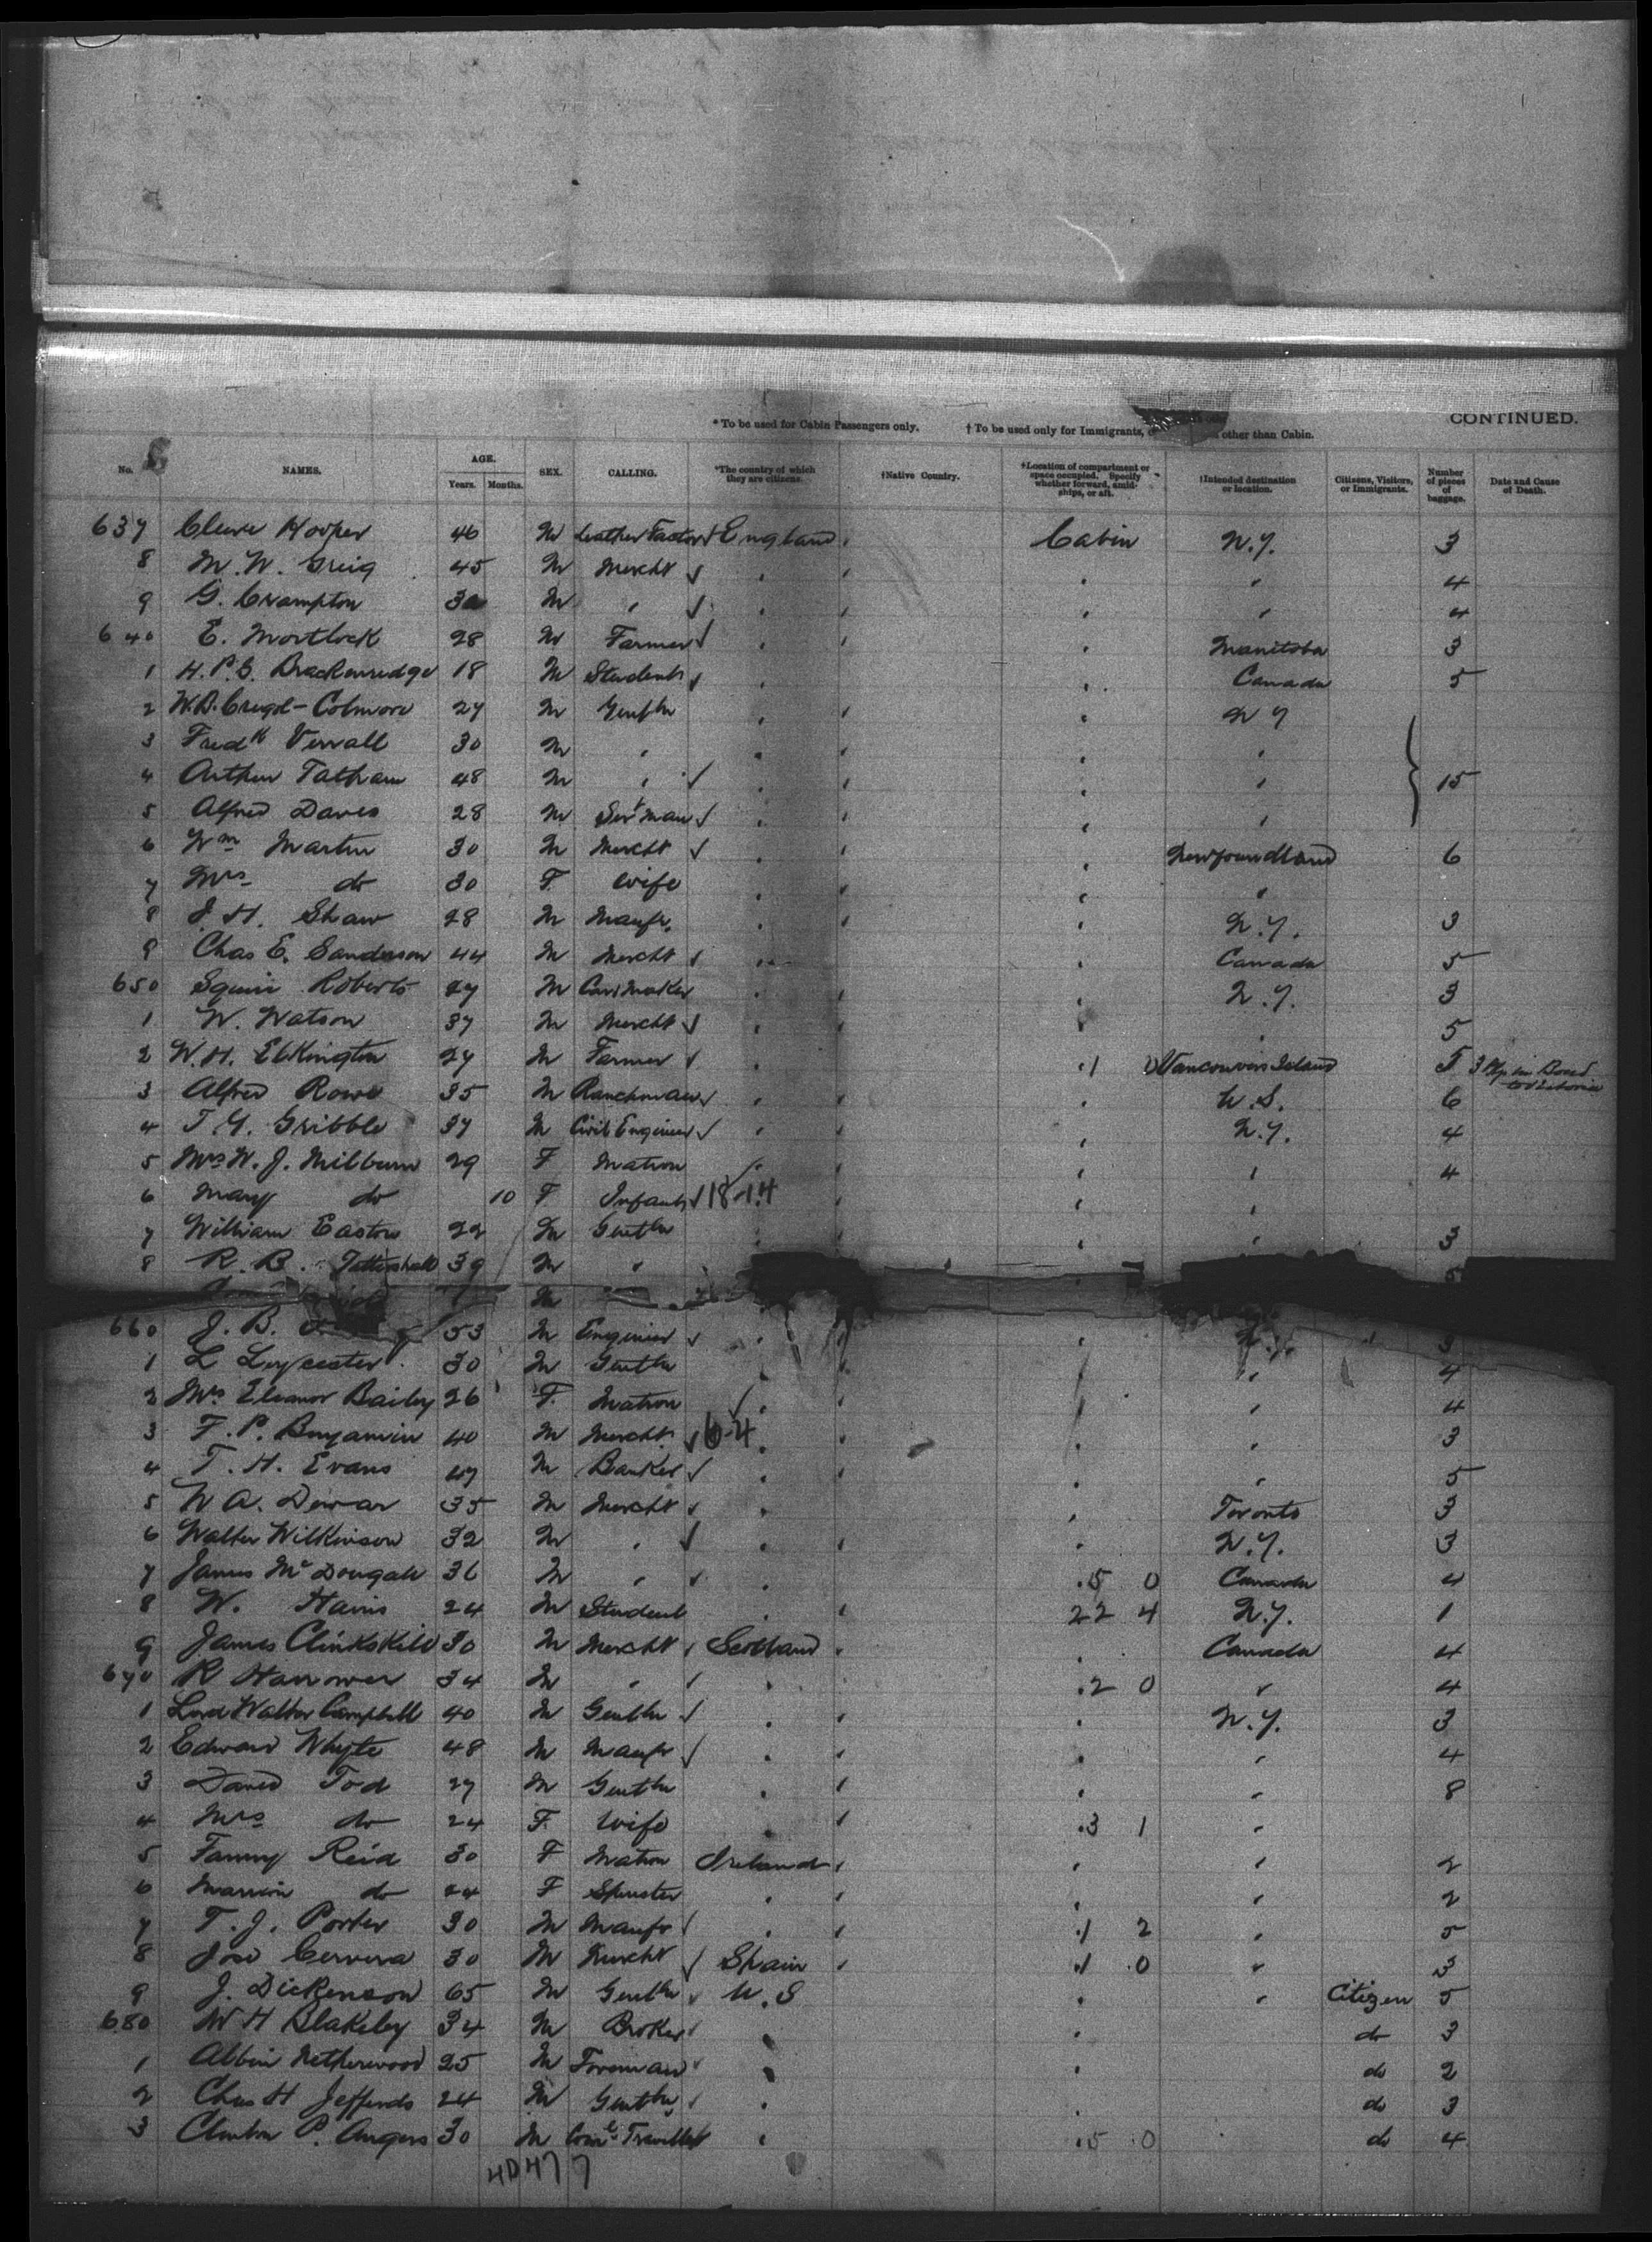 CONTINUED.
* To be used for Cabin Passengers only. † To be used only for Immigrants, other than Cabin.
No. NAMES. AGE. Years. Months. SEX. CALLING. *The country of which they are citizens. †Native Country. †Location of compartment or space occupied. Specify whether forward, amidships, or aft. †Intended destination or location. Citizens, Visitors, or Immigrants. Number of pieces of baggage. Date and Cause of Death.
637 Cleeve Hooper 46 M Leather Factor England Cabin N.Y. 3
8 M. W. Greig 45 M Mercht " " " 4
9 G. Crampton M " " " " 4
640 E. Mortlock 28 M Farmer " " Manitoba 3
1 H. P. G. Brackenredge 18 M Student " " Canada 5
2 W.B. Cregol-Colmore 27 M Gentln " " N Y
3 Fredk Verrall 30 M " " " "
4 Arthur Tatham 48 M " " " " 15
5 Alfred Daves 28 M Servt Man " " "
6 Wm Martin 30 M Mercht " " Newfoundland 6
7 Mrs do 30 F. Wife " " "
8 J. H. Shaw 28 M Manfr. " " N.Y. 3
9 Chas E. Sanderson 44 M Mercht " " Canada 5
650 Squire Roberts 27 M Card Maker " " N.Y. 3
1 W. Watson 37 M Mercht " " " 5
2 W. H. Elkington 27 M Farmer " 1 0 Vancouvers Island 5 3 in Bond to Victoria
3 Alfred Rowe 35 M Ranchman " " U.S. 6
4 T. G. Gribble 37 M Civil Engineer " " N.Y. 4
5 Mrs W. J. Milburn 29 F Matron " " " 4
6 Mary do 10 F Infant 18-14 " "
7 William Easton 22 M Gentln " " 3
8 R. B. Tattershall 39 M "
M
660 J. B. 53 M Engineer " " N.Y. 3
1 L Leycester 30 M Gentln " " " 4
2 Mrs Eleanor Bailey 26 F. Matron " " " 4
3 F. P. Benjamin 40 M Mercht. 6-4 " " " 3
4 T. H. Evans 47 M Banker " " " 5
5 W A. Dewar 35 M Mercht " " Toronto 3
6 Walter Wilkinson 32 M " " " N.Y. 3
7 James McDougall 36 M " " 5 0 Canada 4
8 W. Harris 24 M Student " 22 4 N.Y. 1
9 James Clinkskill 30 M Mercht Scotland " Canada 4
670 R Harrower 34 M " " 2 0 " 4
1 Lord Walter Campbell 40 M Gentln " " N.Y. 3
2 Edward Whyte 48 M Manfr " " " 4
3 David Tod 27 M Gentln " " " 8
4 Mrs do 24 F. Wife " 3 1 "
5 Fanny Reid 30 F Matron Ireland " " 2
6 Marrion do 24 F Spinster " " " 2
7 T. J. Porter 30 M Manfr " 1 2 " 5
8 Jose Cervera 30 M Mercht Spain 1 0 " 3
9 J. Dickenson 65 M Gentln U.S " " Citizen 5
680 W H Blakeley 34 M Broker " " do 3
1 Albin Netherwood 25 M Foreman " " do 2
2 Chas H Jeffords 24 M Gentln " " do 3
3 Clinton P. Angers 30 M Comcl Traveller " 5 0 do 4